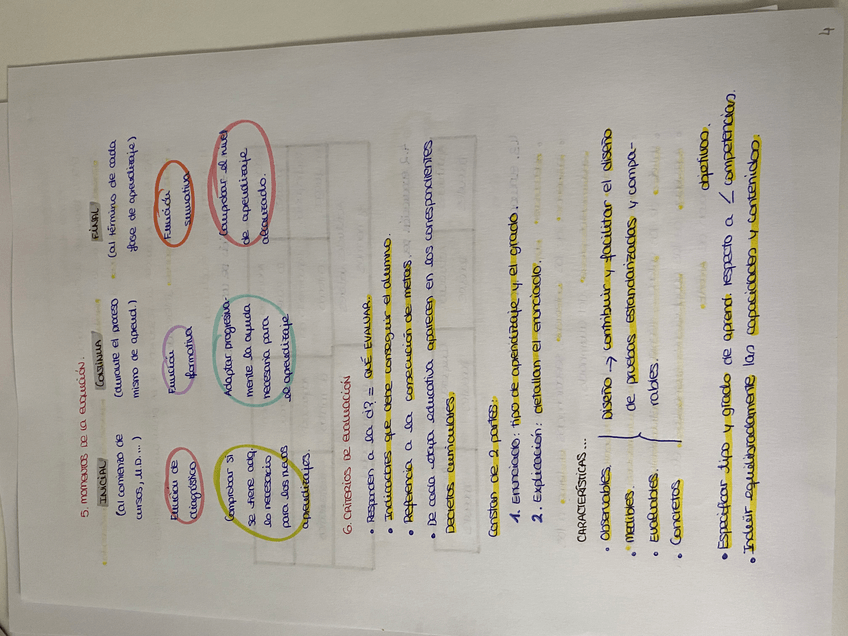 5. MOMENTOS DE LA EVALUACIÓN:
INICIAL CONTINUA FINAL
(al comienzo de (durante el proceso (al término de cada
cursos, U.D....) mismo de aprend.) fase de aprendizaje)
Función de Función Función
diagnóstico formativa sumativa
Comprobar si Adaptar progresiva- Comprobar el nivel
se tiene adq. mente la ayuda de aprendizaje
lo necesario necesaria para alcanzado.
para los nuevos el aprendizaje
aprendizajes.
6. CRITERIOS DE EVALUACIÓN
• Responden a la d? = QUÉ EVALUAR.
• Indicadores que debe conseguir el alumno.
• Referencia a la consecución de metas.
• De cada etapa educativa aparecen en los correspondientes
Decretos curriculares.
Constan de 2 partes:
1. Enunciado: tipo de aprendizaje y el grado.
2. Explicación: detallan el enunciado.
CARACTERÍSTICAS...
• Observables. Diseño → contribuir y facilitar el diseño
• Medibles. de pruebas estandarizadas y compa-
• Evaluables. rables.
• Concretos
objetivos.
• Especificar tipo y grado de aprend. respecto a < competencias.
• Incluir equilibradamente las capacidades y contenidos.
4